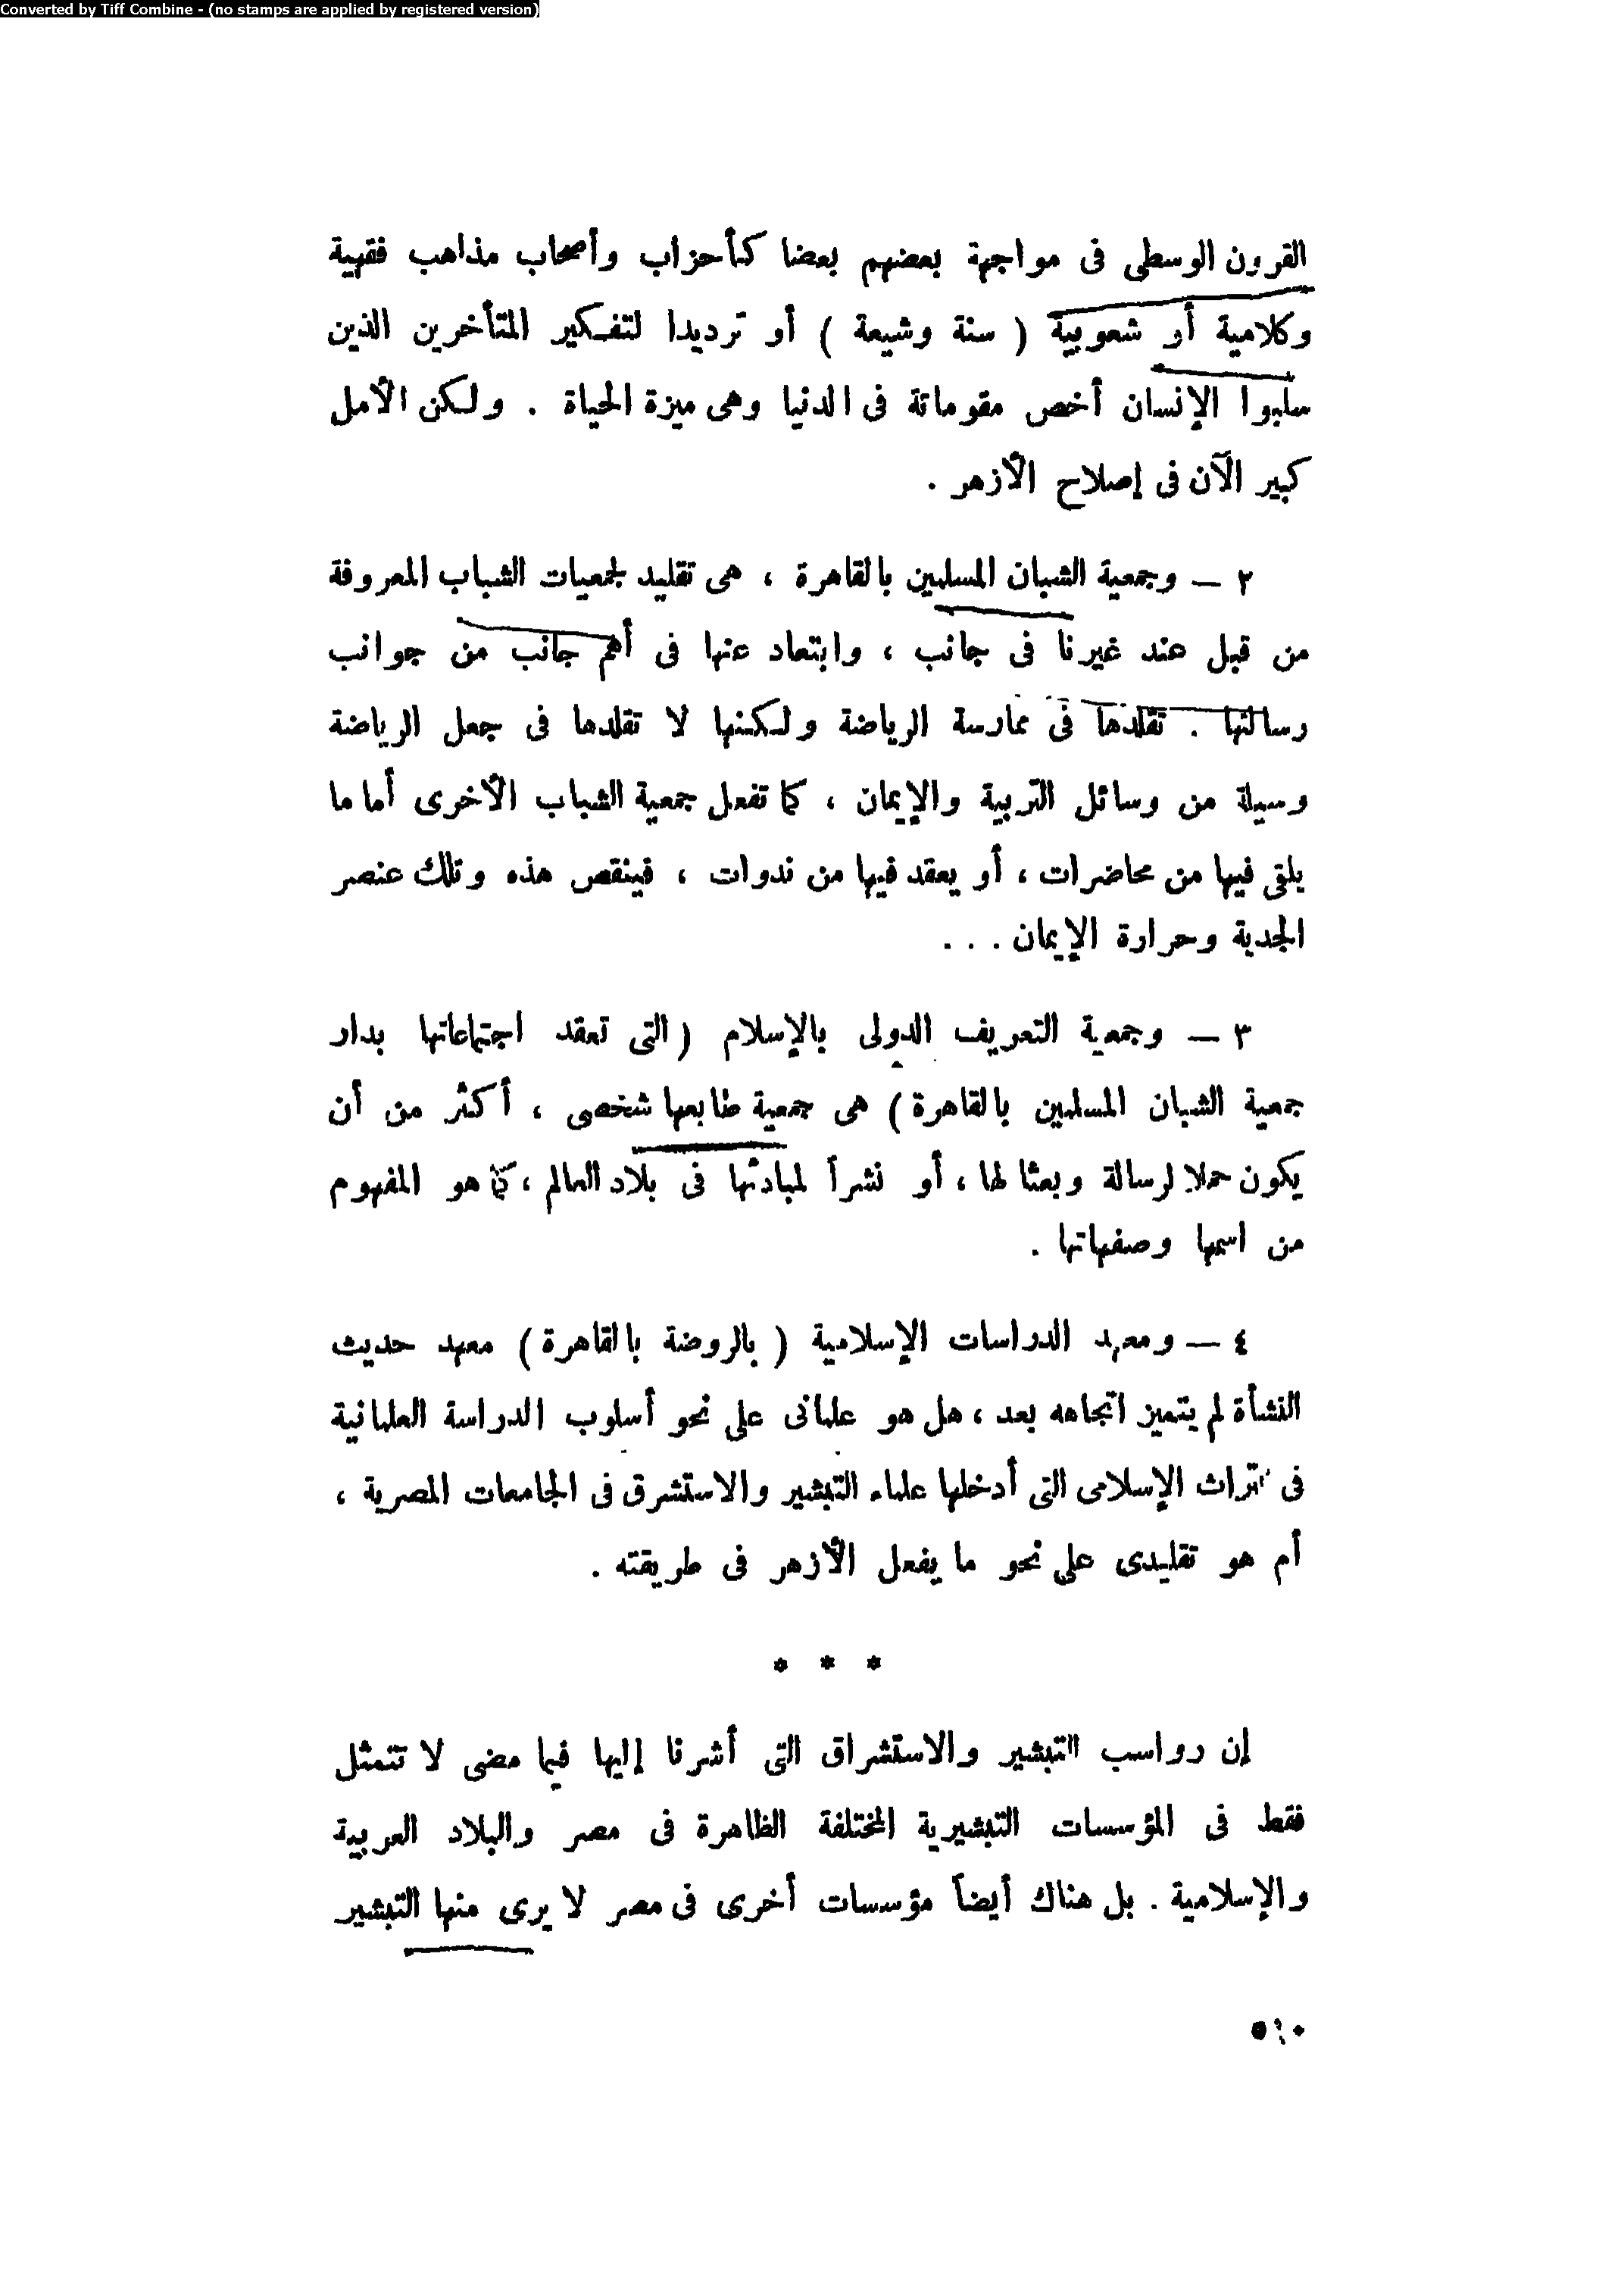 Converted by Tiff Combine - (no stamps are applied by registered version)
القرون الوسطى فى مواجهة بعضهم بعضا كأحزاب وأصحاب مذاهب فقهية
وكلامية أو شعوبية ( سنة وشيعة ) أو ترديدا لتفكير المتأخرين الذين
سلبوا الإنسان أخص مقوماتة فى الدنيا وهى ميزة الحياة . ولكن الأمل
كبير الآن فى إصلاح الأزهر .
٢ — وجمعية الشبان المسلمين بالقاهرة ، هى تقليد لجمعيات الشباب المعروفة
من قبل عند غيرنا فى جانب ، وابتعاد عنها فى أهم جانب من جوانب
رسالتها . تقلدها فى ممارسة الرياضة ولكنها لا تقلدها فى جعل الرياضة
وسيلة من وسائل التربية والإيمان ، كما تفعل جمعية الشباب الأخرى أما ما
يلقى فيها من محاضرات ، أو يعقد فيها من ندوات ، فينقص هذه وتلك عنصر
الجدية وحرارة الإيمان . . .
٣ — وجمعية التعريف الدولى بالإسلام ( التى تعقد اجتماعاتها بدار
جمعية الشبان المسلمين بالقاهرة ) هى جمعية طابعها شخصى ، أكثر من أن
يكون حملا لرسالة وبعثا لها ، أو نشراً لمبادئها فى بلاد العالم ، كما هو المفهوم
من اسمها وصفهاتها .
٤ — ومعهد الدراسات الإسلامية ( بالروضة بالقاهرة ) معهد حديث
النشأة لم يتميز اتجاهه بعد ، هل هو علمانى على نحو أسلوب الدراسة العلمانية
فى التراث الإسلامى التى أدخلها علماء التبشير والاستشرق فى الجامعات المصرية ،
أم هو تقليدى على نحو ما يفعل الأزهر فى طريقته .
* * *
إن رواسب التبشير والاستشراق التى أشرنا إليها فيما مضى لا تتمثل
فقط فى المؤسسات التبشيرية المختلفة الظاهرة فى مصر والبلاد العربية
والإسلامية . بل هناك أيضاً مؤسسات أخرى فى مصر لا يرى منها التبشير
٥١٠